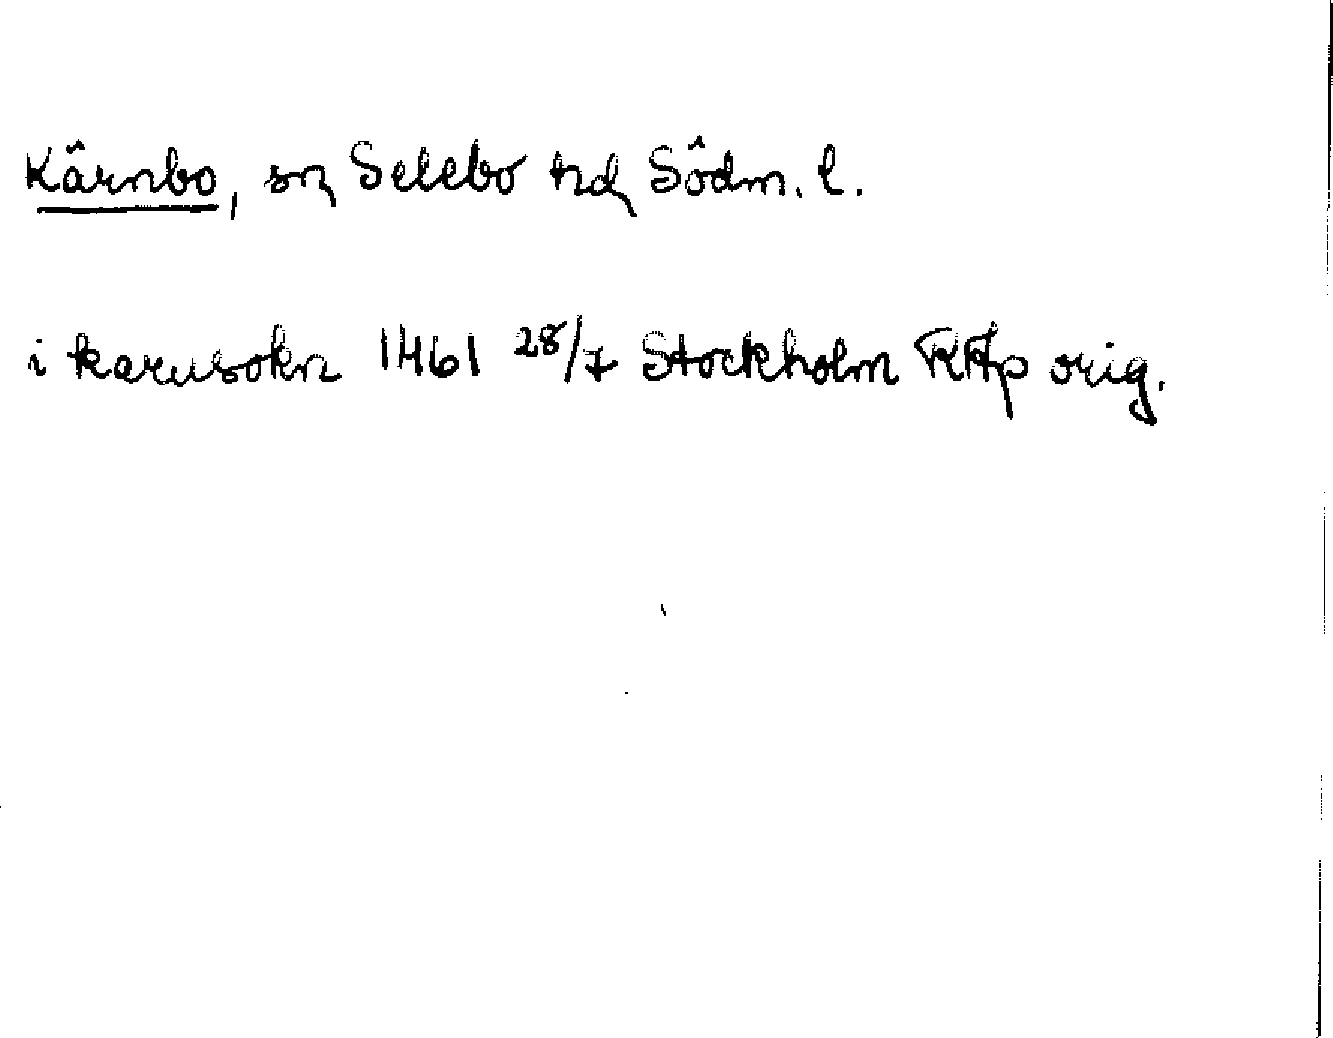 Kärnbo, sn Selebo hd Södm. l.
i karusokn 1461 28/7 Stockholm RAp orig.